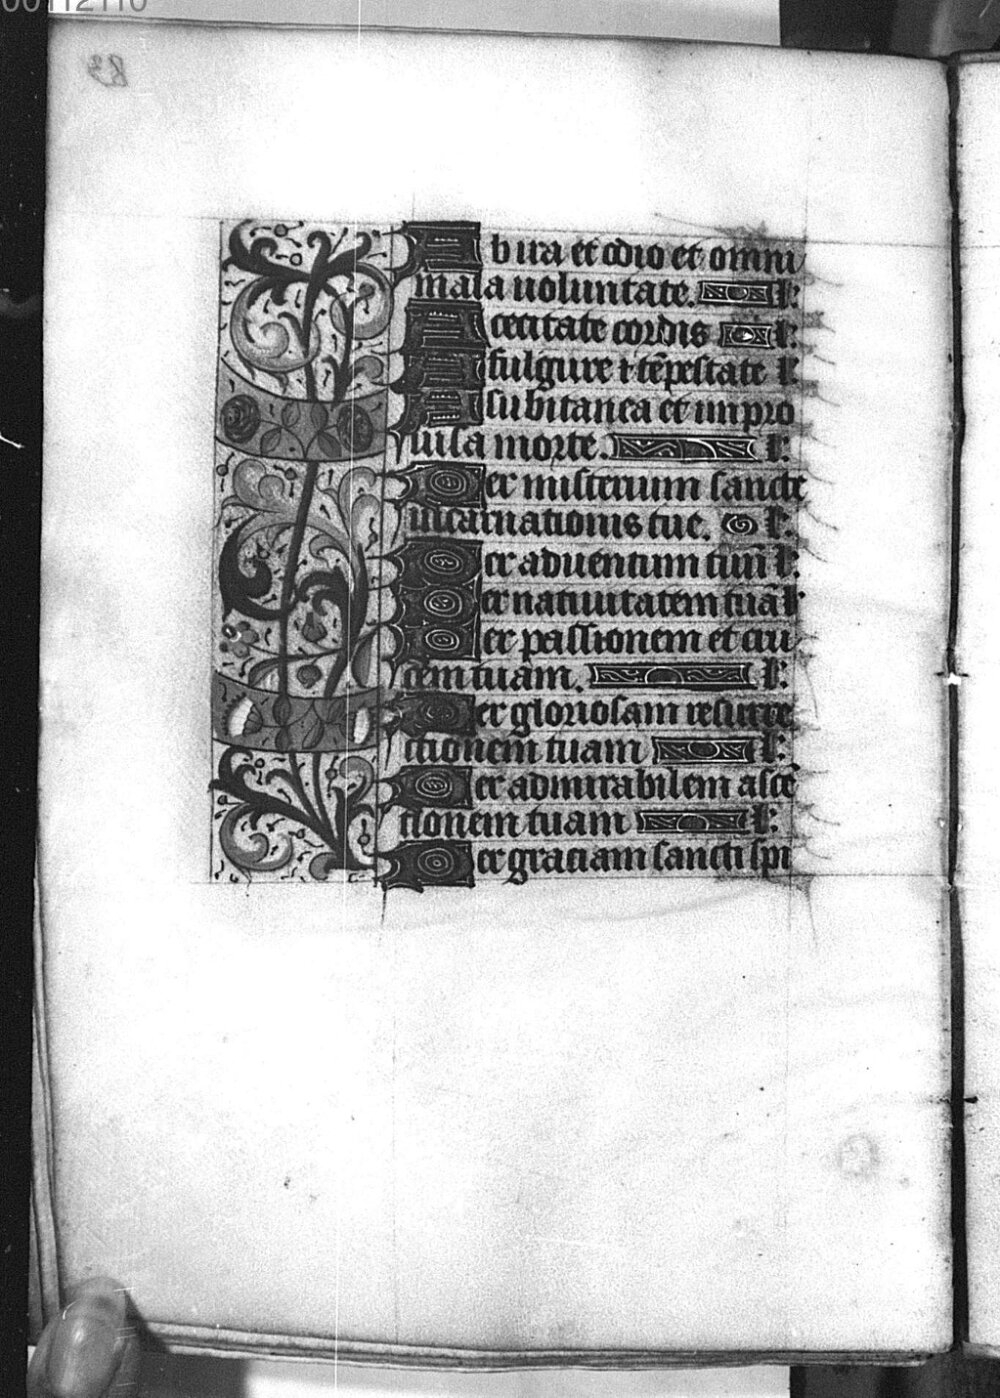 00112110
83
Ab ira et odio et omni
mala uoluntate. L:
A cecitate cordis L:
A fulgure ⁊ tēpestate L:
A subitanea et impro
uisa morte. L:
Per misterium sancte
incarnationis tue. L:
Per aduentum tuū L:
Per natiuitatem tuā L
Per passionem et cru
cem tuam. L:
Per gloriosam resurre
ctionem tuam L:
Per admirabilem asce
tionem tuam L:
Per graciam sancti spi